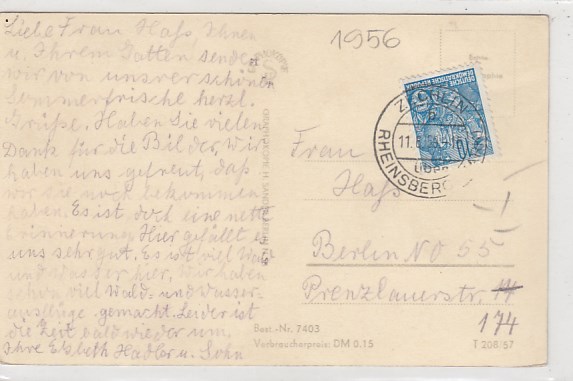 Liebe Frau Haß, Ihnen
u. Ihrem Gatten senden
wir von unsrer schönen
Sommerfrische herzl.
Grüße. Haben Sie vielen
Dank für die Bilder, wir
haben uns gefreut, daß
wir sie noch bekommen
haben. Es ist doch eine nette
Erinnerung. Hier gefällt es
uns sehr gut. Es ist viel Wald
und Wasser hier, wir haben
schon viel Wald- und Wasser-
ausflüge gemacht. Leider ist
die Zeit bald wieder um.
Ihre Elsbeth Hadler u. Sohn
1956
DEUTSCHE
DEMOKRATISCHE REPUBLIK
RHEINSBERG
Frau
Haß
Berlin NO 55
Prenzlauerstr.
174
Best.-Nr. 7403
Verbraucherpreis: DM 0.15
T 208/57